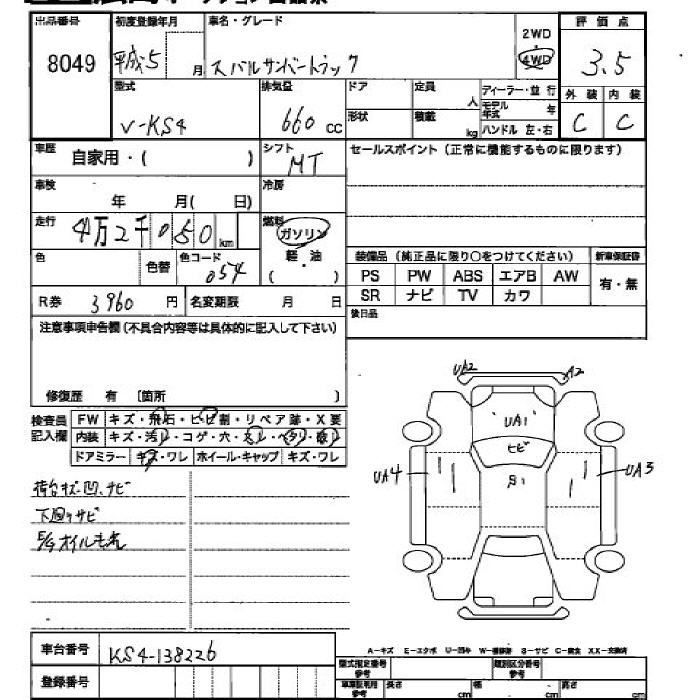 出品番号 初度登録年月 車名・グレード 2WD 評価点
8049 平成5 月 スバルサンバートラック 4WD 3.5
型式 排気量 ドア 定員 人 ディーラー・並行 外装 内装
V-KS4 660 cc 形状 積載 kg モデル年式 年 C C
ハンドル 左・右
車歴 自家用・( ) シフト MT セールスポイント(正常に機能するものに限ります)
車検 年 月( 日) 冷房
走行 4万2千050 km 燃料 ガソリン
色 色替 色コード 054 軽・油 ( )
装備品(純正品に限り○をつけてください) 新車保証書
PS PW ABS エアB AW 有・無
SR ナビ TV カワ
R券 3960 円 名変期限 月 日
後日品
注意事項申告欄(不具合内容等は具体的に記入して下さい)
修復歴 有 〔箇所 〕
検査員 FW キズ・飛石・ヒビ割・リペア跡・X要
記入欄 内装 キズ・汚レ・コゲ・穴・スレ・ヘタリ・破レ
ドアミラー キズ・ワレ ホイール・キャップ キズ・ワレ
荷台キズ・凹、サビ
下回りサビ
UA2 A2
UA1
ヒビ
UA4 UA3
A-キズ E-エクボ U-凹み S-サビ C-腐食
車台番号 KS4-138226
登録番号
型式指定番号 参考 類別区分番号 参考
長さ cm 幅 cm 高さ cm